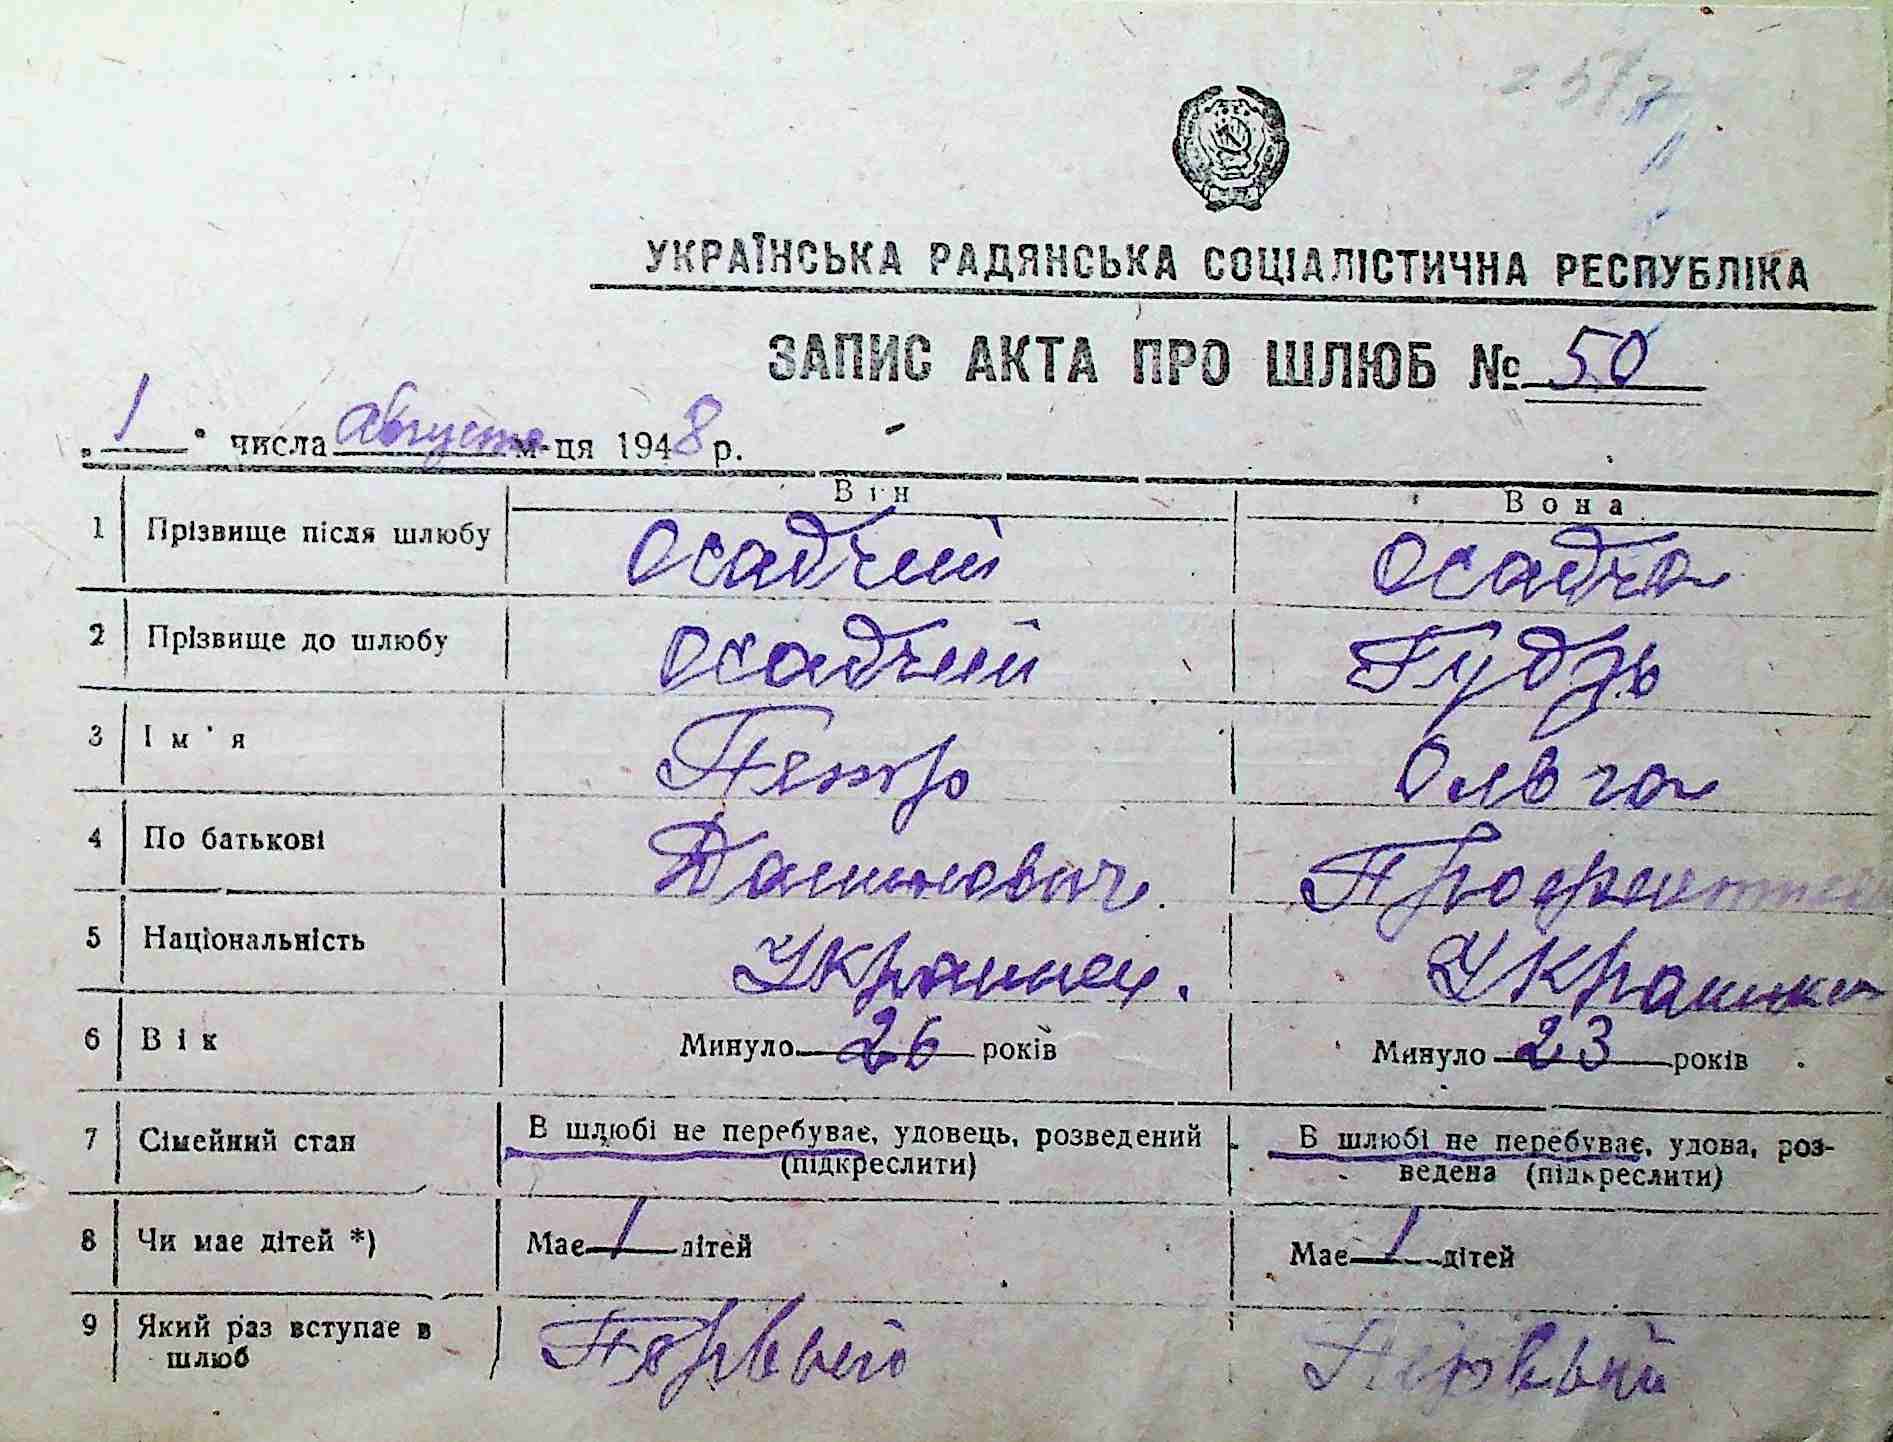 УКРАЇНСЬКА РАДЯНСЬКА СОЦІАЛІСТИЧНА РЕСПУБЛІКА
ЗАПИС АКТА ПРО ШЛЮБ № 50
1 числа августа м-ця 1948 р.
Він Вона
1 Прізвище після шлюбу Осадчий Осадча
2 Прізвище до шлюбу Осадчий Гудзь
3 Ім'я Петр Ольга
4 По батькові
5 Національність Украинец. Украинка
6 Вік Минуло 26 років Минуло 23 років
7 Сімейний стан В шлюбі не перебуває, удовець, розведений В шлюбі не перебуває, удова, роз-
(підкреслити) ведена (підкреслити)
8 Чи має дітей *) Має 1 дітей Має 1 дітей
9 Який раз вступає в Первый Первый
шлюб